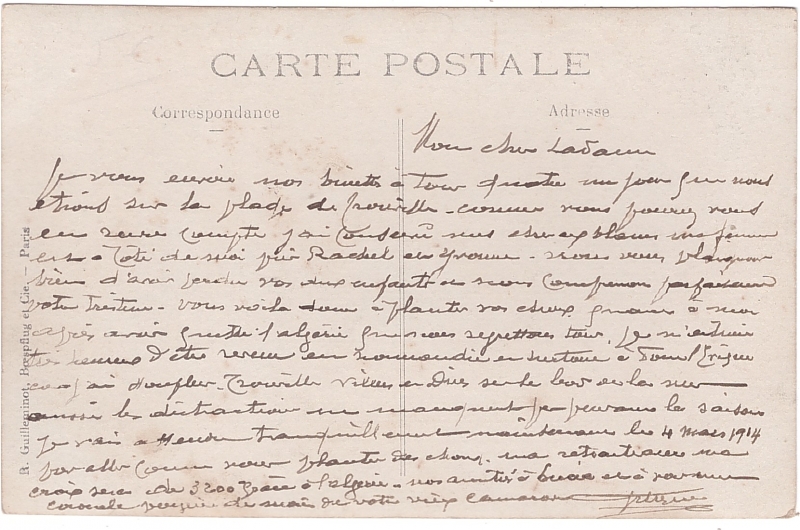 CARTE POSTALE
Correspondance
Adresse
Mon cher
Je vous envoie nos binettes à tous quatre un jour que nous
étions sur la plage de Trouville comme vous pouvez vous
en rendre compte j'ai conservé mes cheveux blancs ma femme
est à côté de moi puis Rachel et Yvonne - nous vous plaignons
bien d'avoir perdu vos deux enfants et nous comprenons parfaitement
votre tristesse - vous voilà donc à planter vos choux quant à moi
après avoir quitté l'algérie que nous regrettons tous. Je m'estime
très heureux d'être revenu en normandie et surtout à
Trouville villes en Dies sur le bord de la mer
aussi les distractions ne manquent pas pendant la saison
Je vais attendre tranquillement maintenant le 4 mars 1914
pour aller comme vous planter des choux. ma retraite avec ma
croix sera de 3200 à l'algérie - nos amitiés à tous et à
de votre vieux camarade
R. Guilleminot, Bœspflug et Cie. — Paris